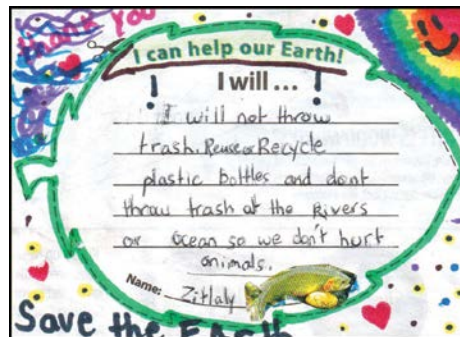 thank you
I can help our Earth!
I will ...
I will not throw
trash. Reuse or Recycle
plastic bottles and dont
throw trash at the Rivers
or ocean so we don't hurt
animals.
Name: Zitlaly
Save the Earth